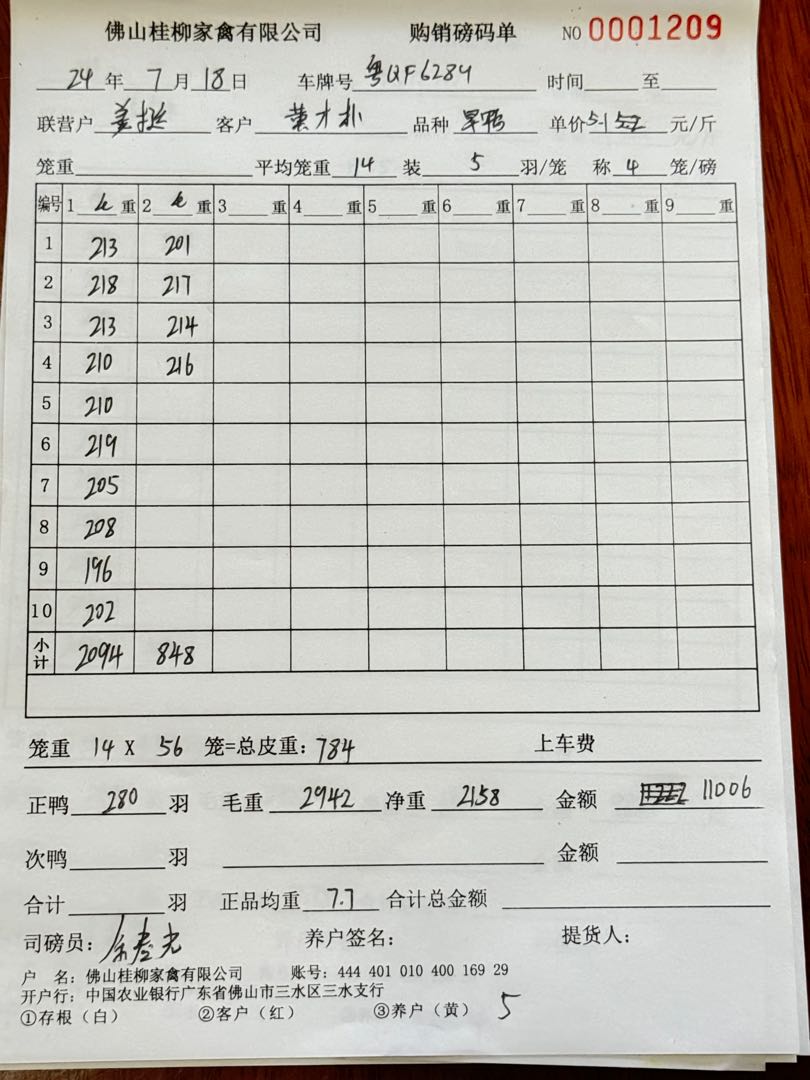 佛山桂柳家禽有限公司 购销磅码单 NO 0001209
24 年 7 月 18 日 车牌号 粤QF6284 时间 至
联营户 客户 叶才朴 品种 旱鸭 单价 5.1 元/斤
笼重 平均笼重 14 装 5 羽/笼 称 4 笼/磅
编号 1 重 2 重 3 重 4 重 5 重 6 重 7 重 8 重 9 重
1 213 201
2 218 217
3 213 214
4 210 216
5 210
6 219
7 205
8 208
9 196
10 202
小计 2094 848
笼重 14 X 56 笼=总皮重: 784 上车费
正鸭 280 羽 毛重 2942 净重 2158 金额 11006
次鸭 羽 金额
合计 羽 正品均重 7.7 合计总金额
司磅员: 养户签名: 提货人:
户 名: 佛山桂柳家禽有限公司 账号: 444 401 010 400 169 29
开户行: 中国农业银行广东省佛山市三水区三水支行
①存根(白) ②客户(红) ③养户(黄) 5